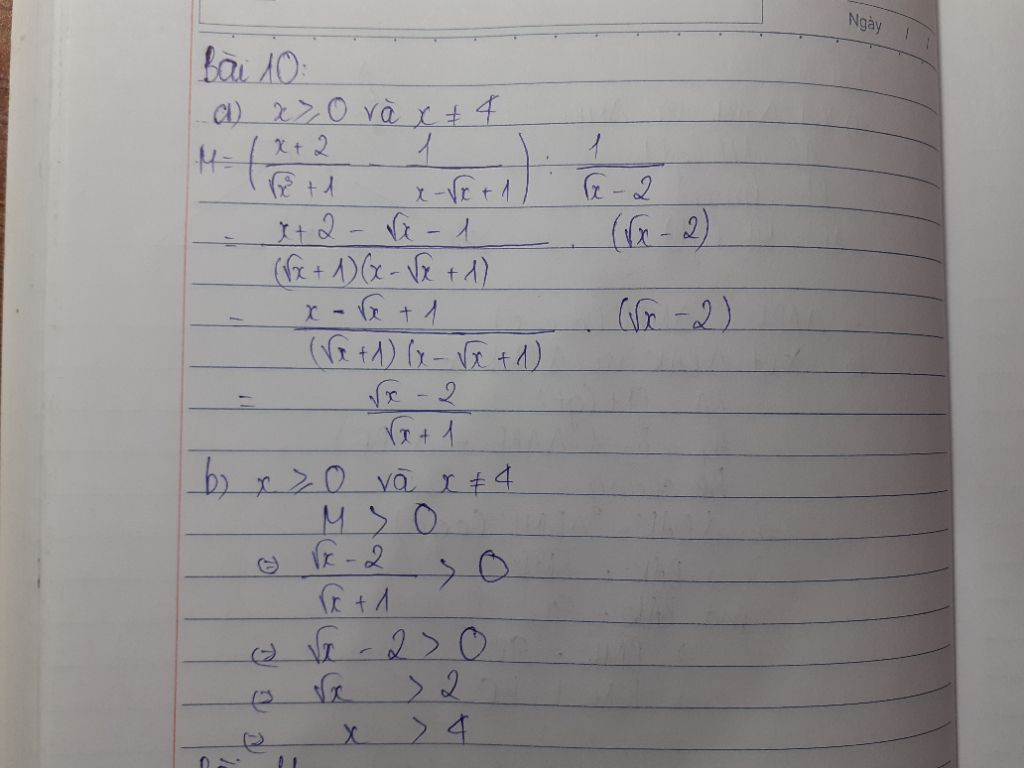 Ngày / /
Bài 10:
a) x ≥ 0 và x ≠ 4
M = ( (x + 2)/(√x³ + 1) - 1/(x - √x + 1) ) : 1/(√x - 2)
= (x + 2 - √x - 1)/((√x + 1)(x - √x + 1)) . (√x - 2)
= (x - √x + 1)/((√x + 1)(x - √x + 1)) . (√x - 2)
= (√x - 2)/(√x + 1)
b) x ≥ 0 và x ≠ 4
M > 0
⇔ (√x - 2)/(√x + 1) > 0
⇔ √x - 2 > 0
⇔ √x > 2
⇔ x > 4